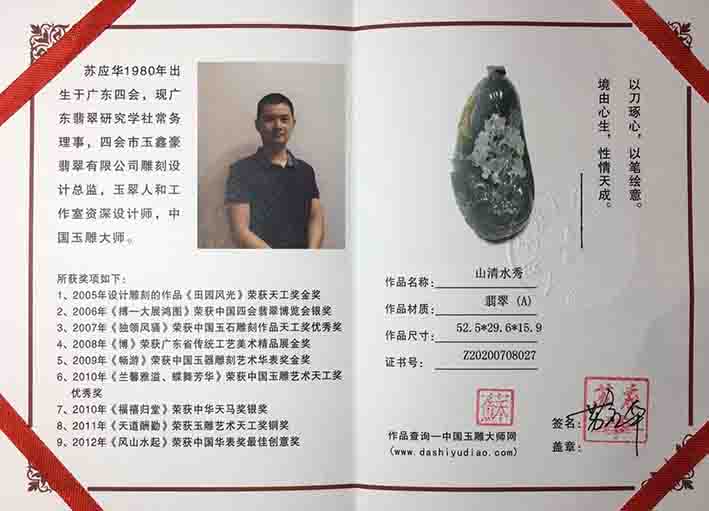 苏应华1980年出
生于广东四会，现广
东翡翠研究学社常务
理事，四会市玉鑫豪
翡翠有限公司雕刻设
计总监，玉翠人和工
作室资深设计师，中
国玉雕大师。
所获奖项如下：
1、2005年设计雕刻的作品《田园风光》荣获天工奖金奖
2、2006年《搏一大展鸿图》荣获中国四会翡翠博览会银奖
3、2007年《独领风骚》荣获中国玉石雕刻作品天工奖优秀奖
4、2008年《博》荣获广东省传统工艺美术精品展金奖
5、2009年《畅游》荣获中国玉器雕刻艺术华表奖金奖
6、2010年《兰馨雅溢、蝶舞芳华》荣获中国玉雕艺术天工奖
优秀奖
7、2010年《福禧归堂》荣获中华天马奖银奖
8、2011年《天道酬勤》荣获玉雕艺术天工奖铜奖
9、2012年《风山水起》荣获中国华表奖最佳创意奖
以刀琢心，以笔绘意。
境由心生，性情天成。
作品名称：山清水秀
作品材质：翡翠（A）
作品尺寸：52.5*29.6*15.9
证书号：Z20200708027
作品查询—中国玉雕大师网
(www.dashiyudiao.com)
签名：苏应华
盖章：